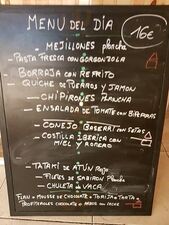 MENU DEL DÍA
16€
— MEJILLONES plancha
— PASTA FRESCA con GORGONZOLA
— BORRAJA con REFRITO
— QUICHE DE PUERROS y JAMON
— CHIPIRONES PLANCHA
— ENSALADA DE TOMATE con
— CONEJO con SETAS
— COSTILLA IBERICA
MIEL y ROMERO
— TATAKI DE ATÚN Rojo
— FILETES DE
— CHULETA de VACA
FLAN • MOUSSE de CHOCOLATE • TORRIJA • TARTA •
PROFITEROLES CHOCOLATE • ARROZ con LECHE